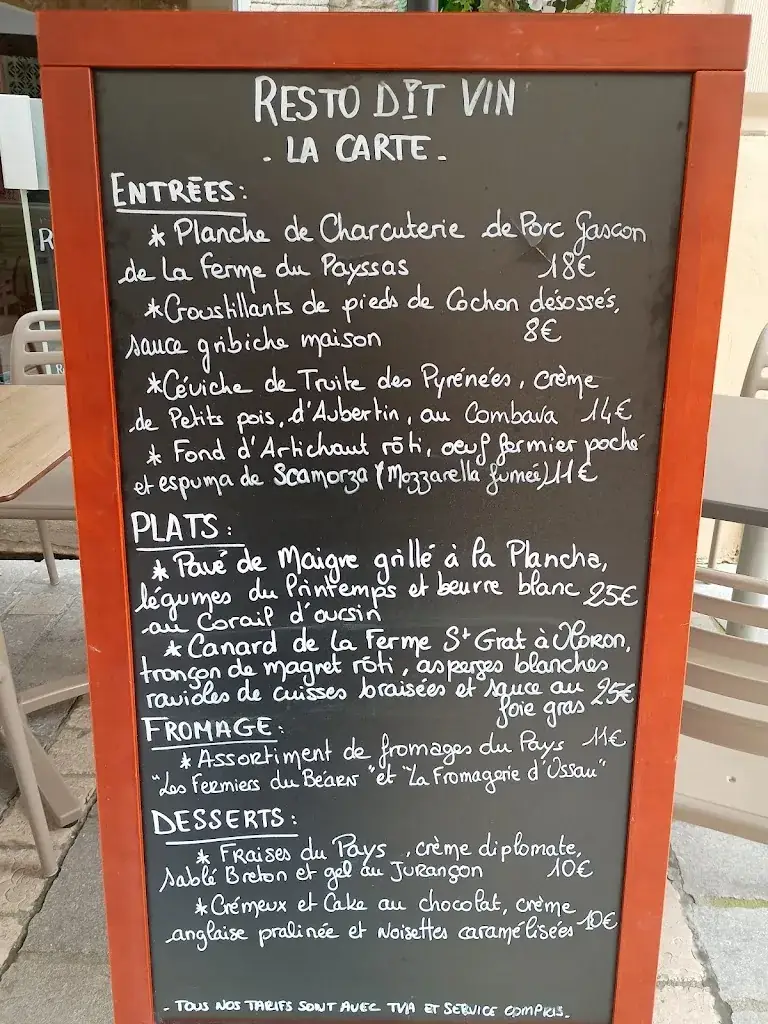 RESTO DIT VIN
- LA CARTE -
ENTRÉES:
* Planche de Charcuterie de Porc Gascon
de la ferme du Payssas 18€
* Croustillants de pieds de Cochon désossés,
sauce gribiche maison 8€
* Céviche de Truite des Pyrénées, crème
de Petits pois, d'Aubertin, au Combava 14€
* Fond d'Artichaut rôti, oeuf fermier poché
et espuma de Scamorza (Mozzarella fumée) 11€
PLATS:
* Pavé de Maigre grillé à la Plancha,
légumes du Printemps et beurre blanc 25€
au Corail d'oursin
* Canard de la Ferme St Grat à Oloron,
tronçon de magret rôti, asperges blanches
ravioles de cuisses braisées et sauce au 25€
foie gras
FROMAGE:
* Assortiment de fromages du Pays 11€
"Les Fermiers du Béarn" et "La Fromagerie d'Ossau"
DESSERTS:
* Fraises du Pays, crème diplomate,
sablé Breton et gel au Jurançon 10€
* Crémeux et Cake au chocolat, crème
anglaise pralinée et Noisettes caramélisées 10€
- TOUS NOS TARIFS SONT AVEC TVA ET SERVICE COMPRIS.